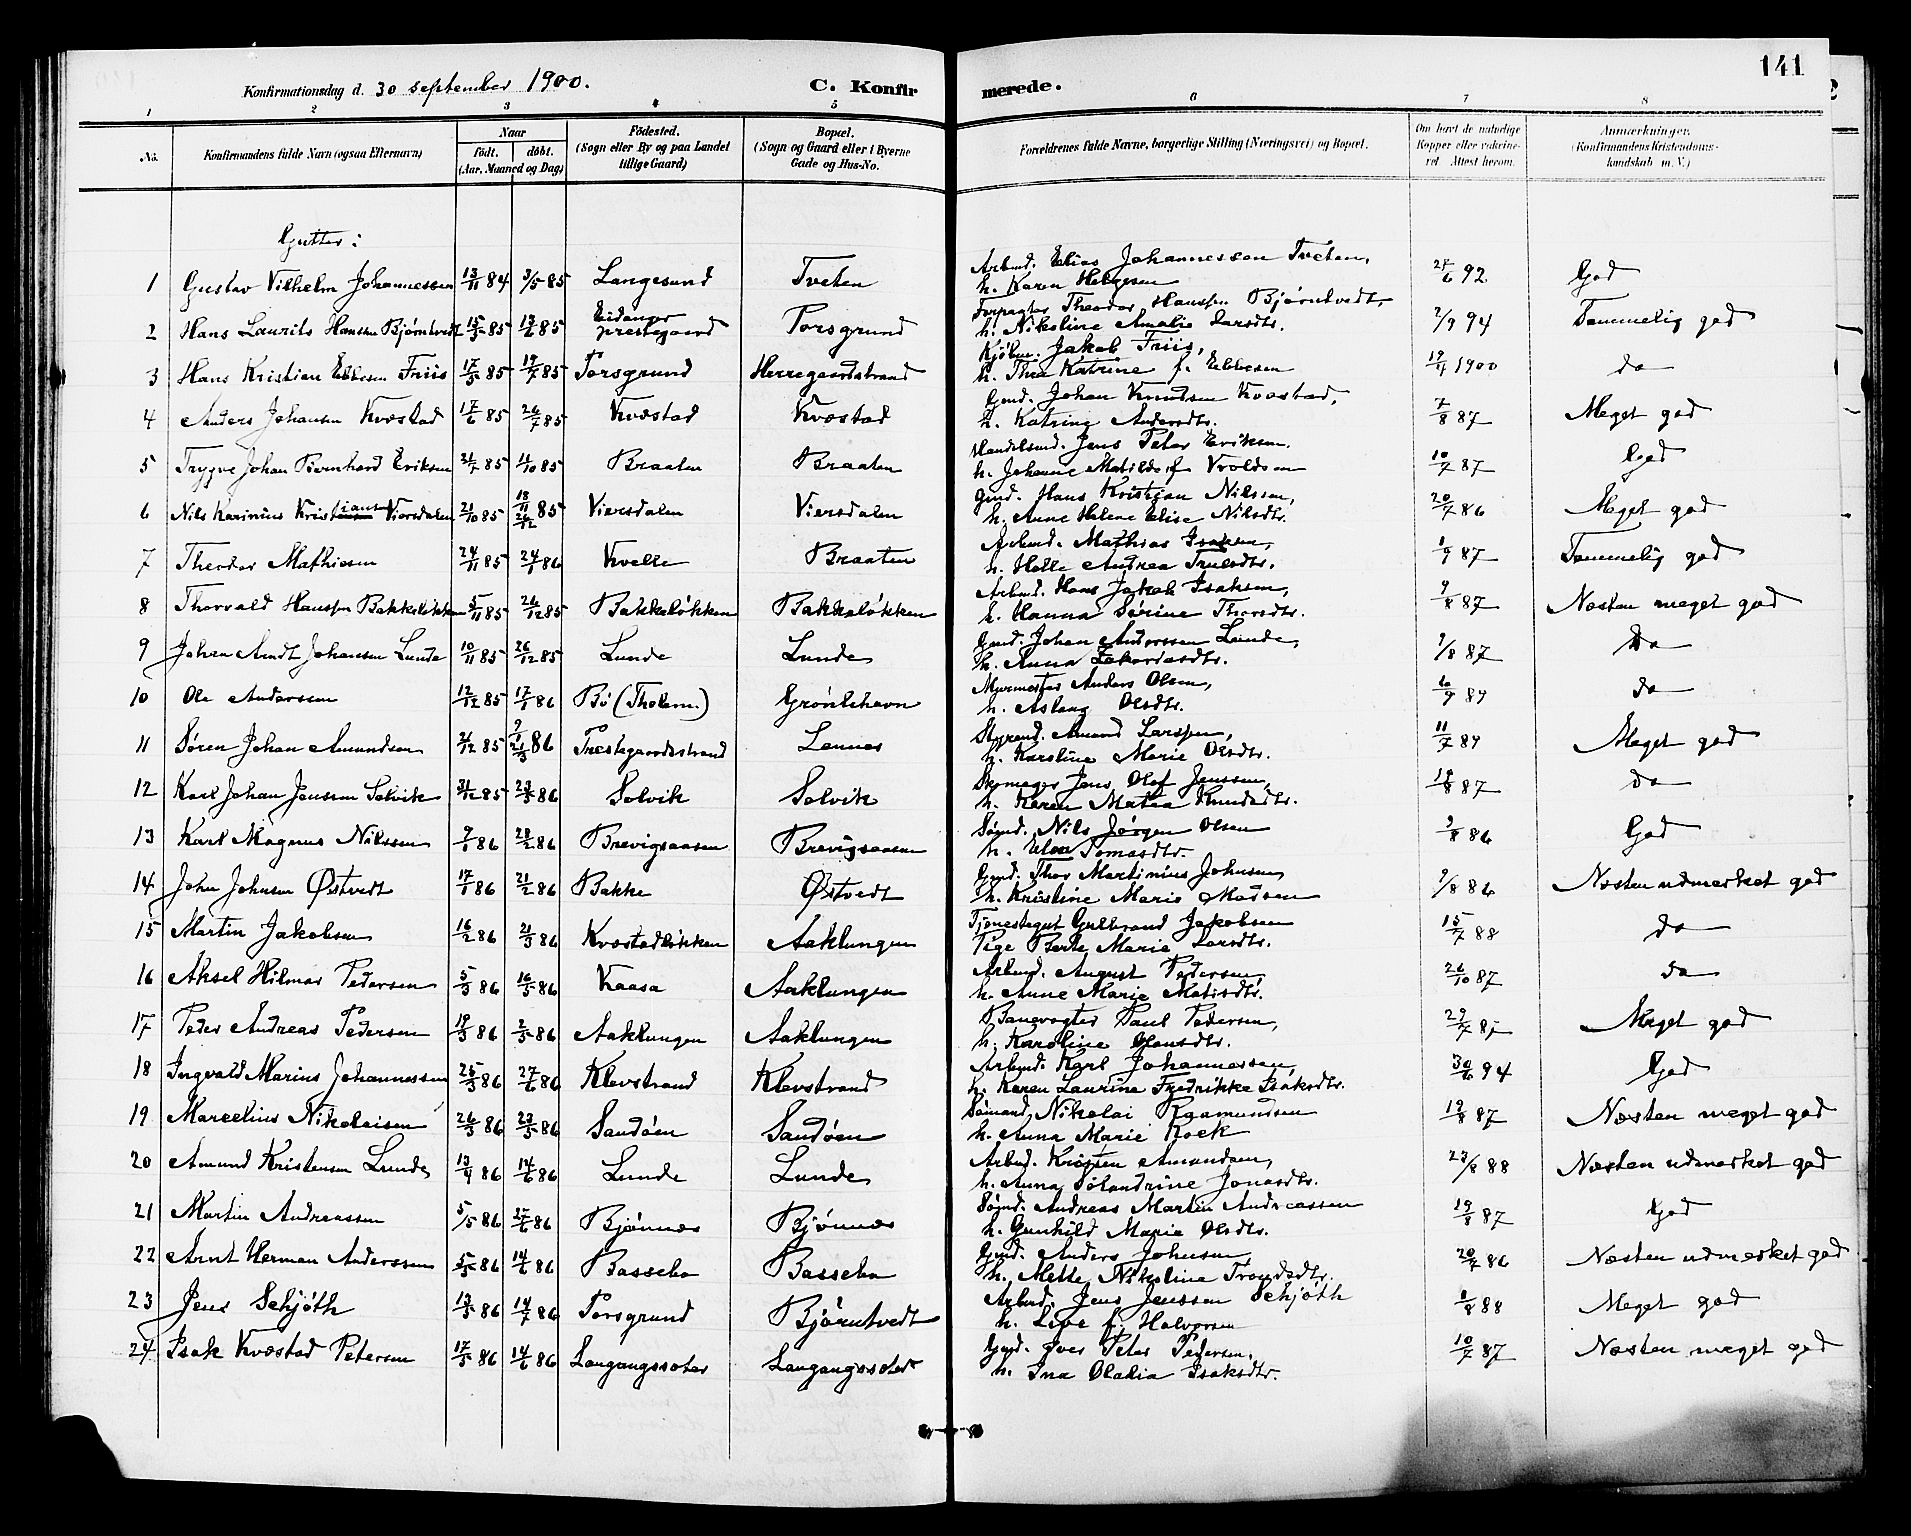 141
Konfirmationsdag d. 30 september 1900. C. Konfirmerede.
1 2 3 4 5 6 7 8
No. Konfirmandens fulde Navn (ogsaa Efternavn) Naar født. døbt. (Aar, Maaned og Dag) Fødested. (Sogn eller By og paa Landet tillige Gaard) Bopæl. (Sogn og Gaard eller i Byerne Gade og Hus-No. Forældrenes fulde Navne, borgerlige Stilling (Næringsvei) og Bopæl. Om havt de naturlige Kopper eller vakcineret. Attest herom. Anmærkninger. (Konfirmandens Kristendomskundskab m. V.)
Gutter:
1 Gustav Vilhelm Johannessen 13/11 84 3/5 85 Langesund Tveten Arbmd. Elias Johannessen Tveten, 27/6 92 God
h. Karen Helgesen
2 Hans Laurits Hansen Bjørntvedt 15/3 85 13/6 85 Eidanger prestegaard Porsgrund Forpagter Theodor Hanssen Bjørntvedt, 2/9 94 Temmelig god
h. Nikoline Amalie Larsdtr.
3 Hans Kristian Ebbesen Friis 17/5 85 19/7 85 Porsgrund Herregaardstrand Kjøbm. Jakob Friis, 19/4 1900 do
h. Thea Katrine f. Ebbesen
4 Anders Johansen Kvæstad 17/6 85 26/7 85 Kvæstad Kvæstad Gmd. Johan Knudsen Kvæstad, 7/8 87 Meget god
h. Katrine Andersdtr.
5 Trygve Johan Bernhard Eriksen 21/7 85 11/10 85 Braaten Braaten Handelsmd. Jens Peter Eriksen. 10/7 87 God
h. Johanne Matilde f. Vroldsen
6 Nils Karinius Kristiansen Viersdalen 21/10 85 18/11 26/12 85 Viersdalen Viersdalen Gmd. Hans Kristian Nilssen, 20/7 86 Meget god
h. Anne Helene Elise Nilsdtr.
7 Theodor Mathisen 24/11 85 24/1 86 Kvelle Braaten Arbmd. Mathias Isaksen, 1/9 87 Temmelig god
h. Helle Andrea Trulsdtr.
8 Thorvald Hanssen Bakkeløkken 5/11 85 26/12 85 Bakkeløkken Bakkeløkken Arbmd. Hans Jakob Isaksen, 9/8 87 Næsten meget god
h. Hanna Sørine Thorsdtr.
9 Johan Arndt Johansen Lunde 10/11 85 26/12 85 Lunde Lunde Gmd. Johan Anderssen Lunde, 9/8 87 Do
h. Anna Zakariasdtr.
10 Ole Anderssen 12/12 85 17/1 86 Bø (Thelem.) Grønlihavn Murmester Anders Olsen, do
h. Aslaug Olsdtr.
11 Søren Johan Amundsen 2/12 85 21/3 86 Prestegaardsstrand Lannes Styrmd. Amund Larssen, 11/7 87 Meget god
h. Karoline Marie Olsdtr.
12 Karl Johan Jenssen Solvik 31/12 85 Solvik Solvik Skomager Jens Olaf Jenssen, 19/8 87 do
h. Karen Matea Knudsdtr.
13 Karl Magnus Nilssen 7/1 86 28/2 86 Brevigsaasen Brevigsaasen Sømd. Nils Jørgen Olsen 9/8 86 God
h. Elen Tomasdtr.
14 John Johnsen Østvedt 17/1 86 21/2 86 Bakke Østvedt Gmd. Thor Martinius Johnsen, 9/8 86 Næsten udmerket god
h. Kristine Marie Madsen
15 Martin Jakobsen 16/2 86 21/3 86 Kvæstadløkken Aaklungen Tjenestegut Gulbrand Jakobsen 15/7 88 do
Pige Berte Marie Larsdtr.
16 Aksel Hilmar Pedersen 5/3 86 16/5 86 Kaasa Aaklungen Arbmd. August Pedersen, 26/10 87 do
h. Anne Marie Matisdtr.
17 Peder Andreas Pedersen 19/3 86 2/5 86 Aaklungen Aaklungen Banevogter Paul Pedersen, Meget god
h. Karoline Hansdtr.
18 Ingvald Marius Johannessen 25/3 86 27/6 86 Klevstrand Klevstrand Arbmd. Karl Johannessen, 30/6 94 God
h. Karen Laurine Fredrikke Isaksdtr.
19 Marcelius Nikolaisen 26/3 86 23/5 86 Sandøen Sandøen Sømand, Nikolai Rasmundsen 19/8 87 Næsten meget god
h. Anna Marie Roek
20 Amund Kristensen Lunde 13/4 86 14/6 86 Lunde Lunde Arbmd. Kristen Amundsen, 23/8 88 Næsten udmerket god
h. Anna Sølandrine Jonasdtr.
21 Martin Andreassen 5/5 86 Bjønnes Bjønnes Sømd. Andreas Martin Andreassen 19/8 87 God
h. Gunhild Marie Olsdtr.
22 Arnt Herman Anderssen 5/5 86 14/6 86 Bassebo Bassebo Gmd. Anders Johnsen, 20/7 86 Næsten udmerket god
h. Mette Nikoline Trondsdtr.
23 Jens Schjøth 13/5 86 14/7 86 Porsgrund Bjørntvedt Arbmd. Jens Jenssen Schjøth 1/8 88 Meget god
h. Live f. Halvorsen
24 Isak Kvæstad Petersen 17/5 86 14/6 86 Langangssæter Langangssæter Gmd. Iver Peter Pedersen. 10/7 87 Næsten meget god
h. Ina Olalia Isaksdtr.